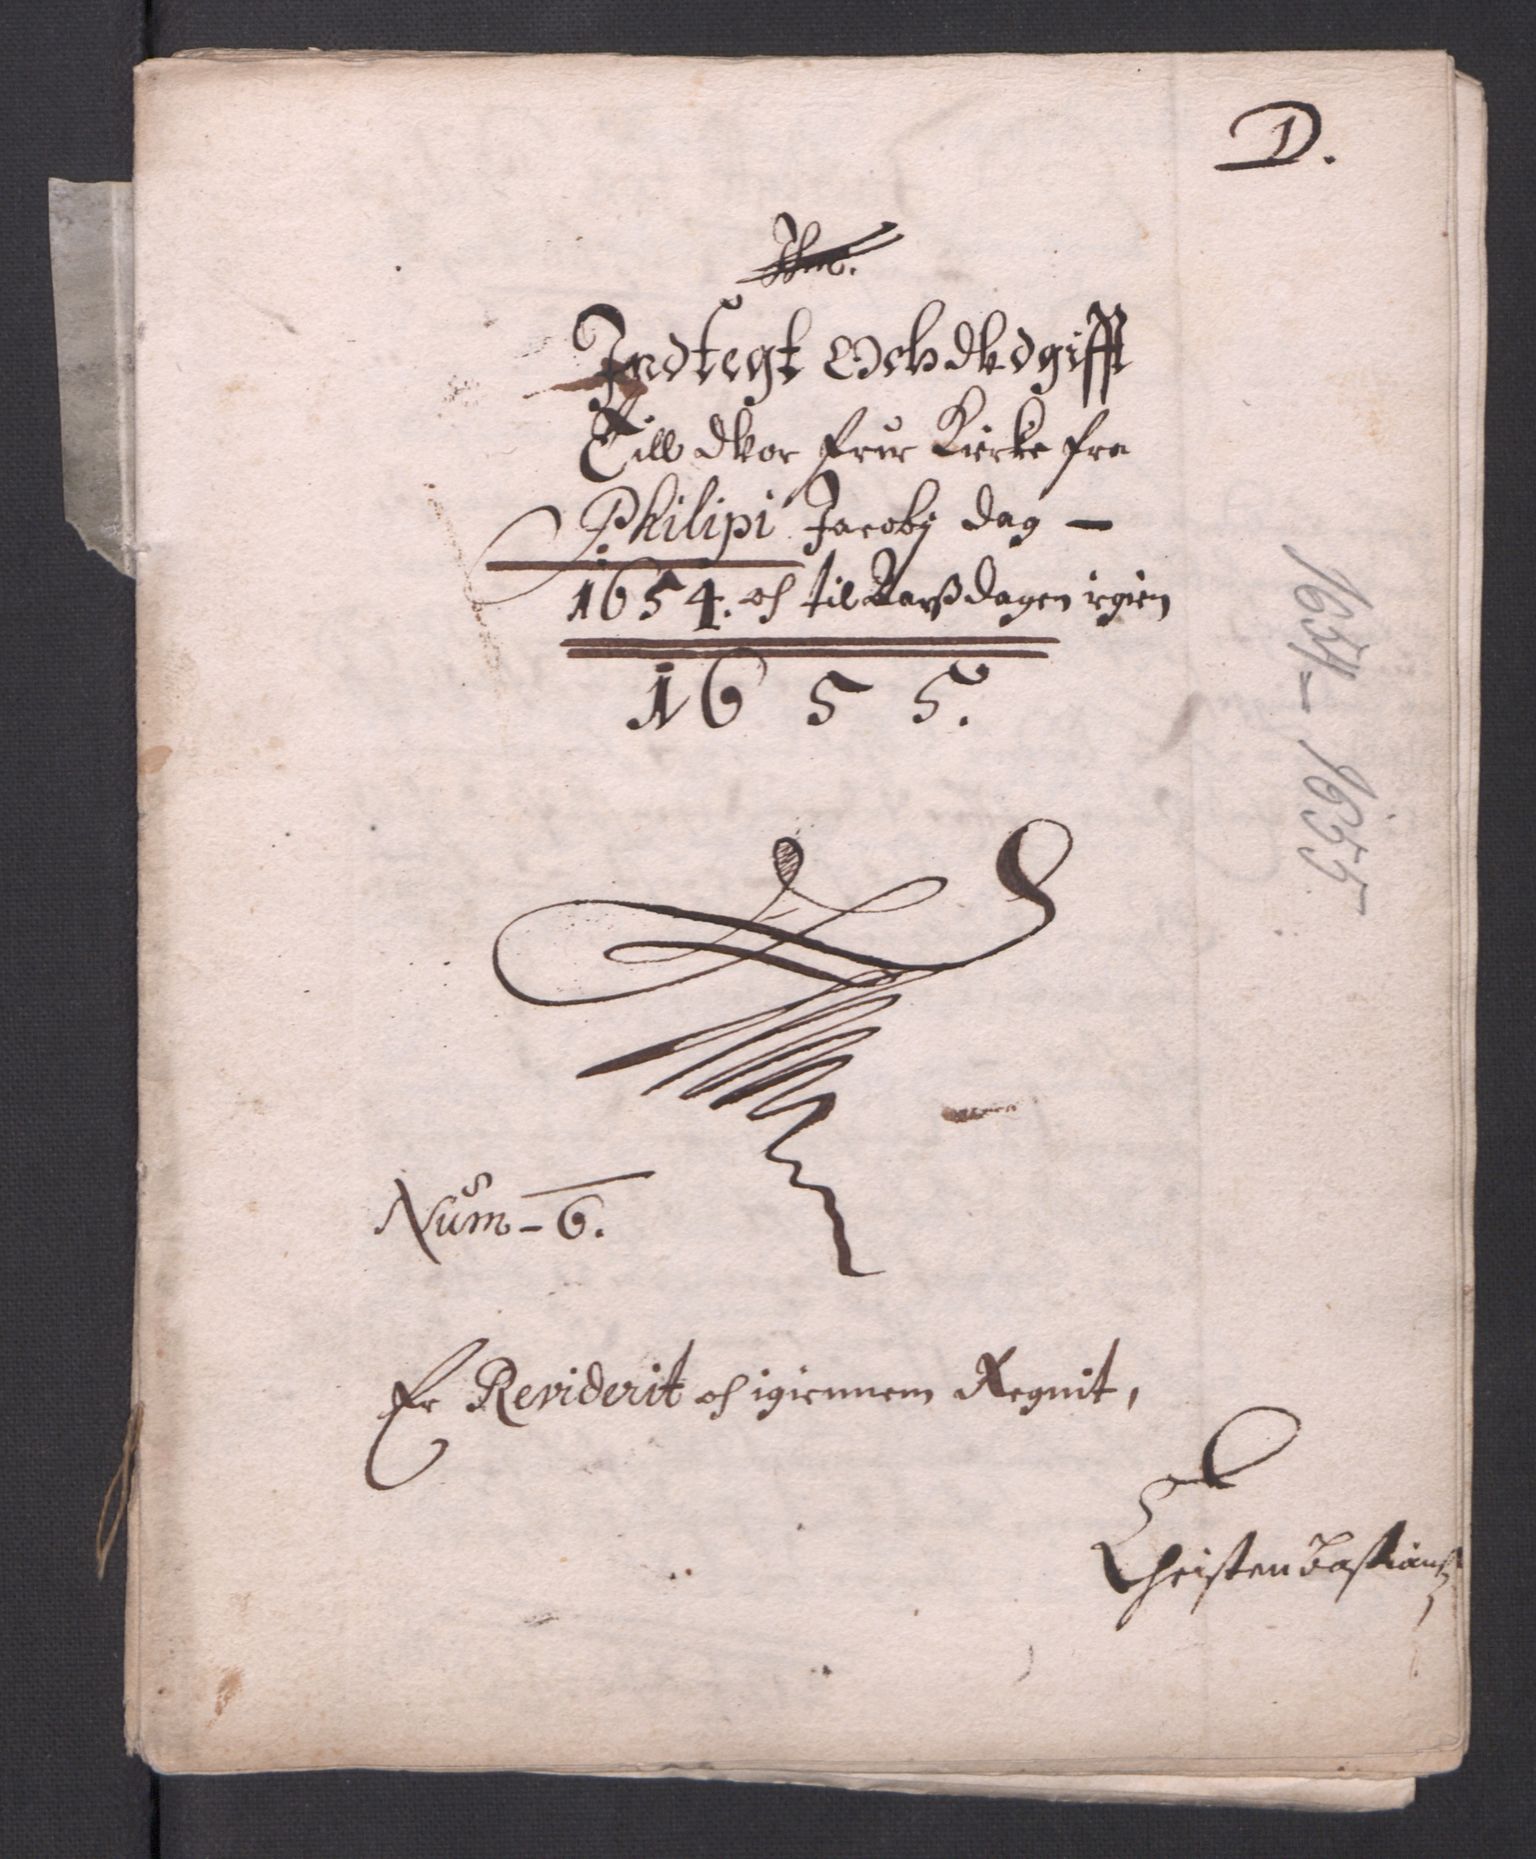 D.
Indtegt Och Vdgifft
Till Vor Frue Kircke fra
Philipi Jacobj dag –
1654. oc til Aarßdagen igien
1655.
1654–1655
Num – 6.
Er Reviderit oc igiennem Regnit,
Christen Bastians